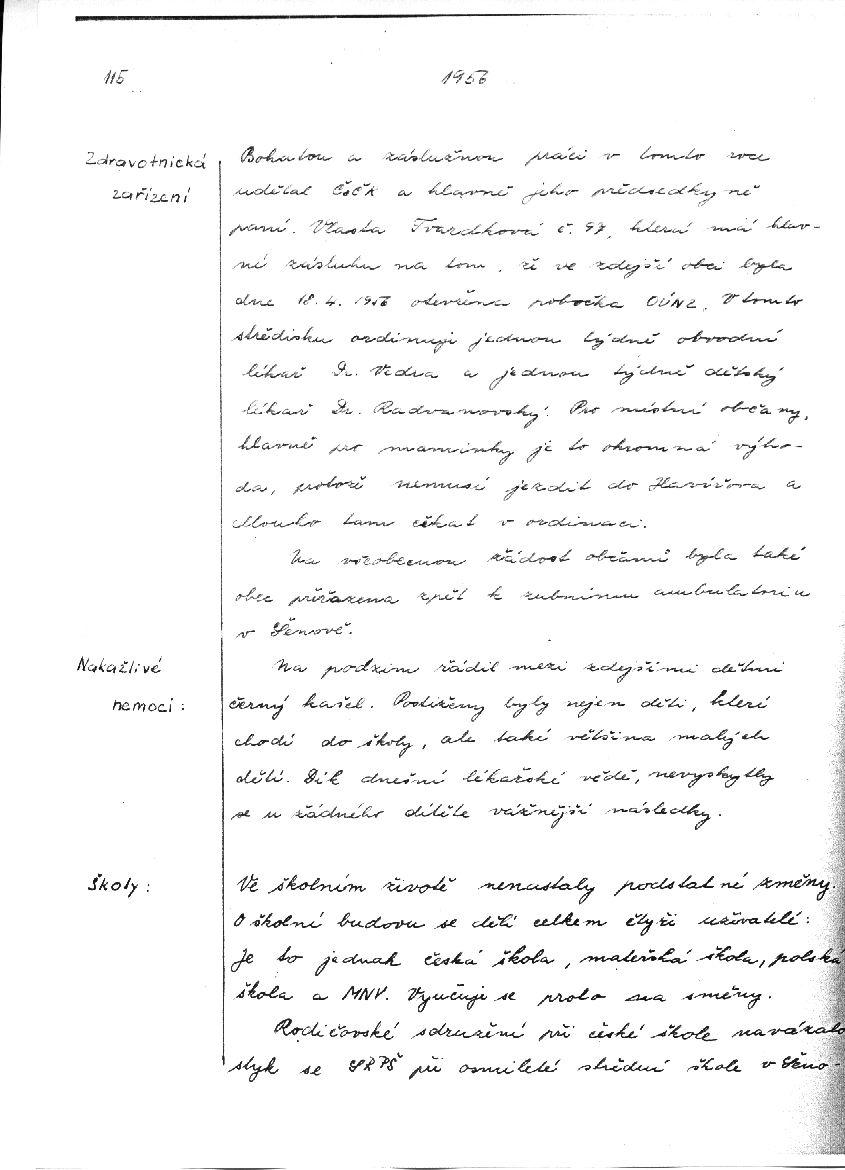 115
1956
Zdravotnická
zařízení
Bohatou a záslužnou práci v tomto roce
udělal ČsČK a hlavně jeho předsedkyně
paní. Vlasta Tvardková č. 97, která má hlav-
ní zásluhu na tom, že ve zdejší obci byla
dne 18.4. 1956 otevřena pobočka OÚNZ. V tomto
středisku ordinují jednou týdně obvodní
lékař Dr. Vedra a jednou týdně dětský
lékař Dr. Radvanovský. Pro místní občany,
hlavně pro maminky je to ohromná výho-
da, protože nemusí jezdit do Havířova a
dlouho tam čekat v ordinaci.
Na všeobecnou žádost občanů byla také
obec přiřazena zpět k zubnímu ambulatoriu
v Šenově.
Nakažlivé
nemoci :
Na podzim řádil mezi zdejšími dětmi
černý kašel. Postiženy byly nejen děti, které
chodí do školy, ale také většina malých
dětí. Dík dnešní lékařské vědě, nevyskytly
se u žádného dítěte vážnější následky.
Školy :
Ve školním životě nenastaly podstatné změny.
O školní budovu se dělí celkem čtyři uživatelé:
Je to jednak česká škola, mateřská škola, polská
škola a MNV. Vyučuje se proto na směny.
Rodičovské sdružení při české škole navázalo
styk se SRPŠ při osmileté střední škole v Šeno-